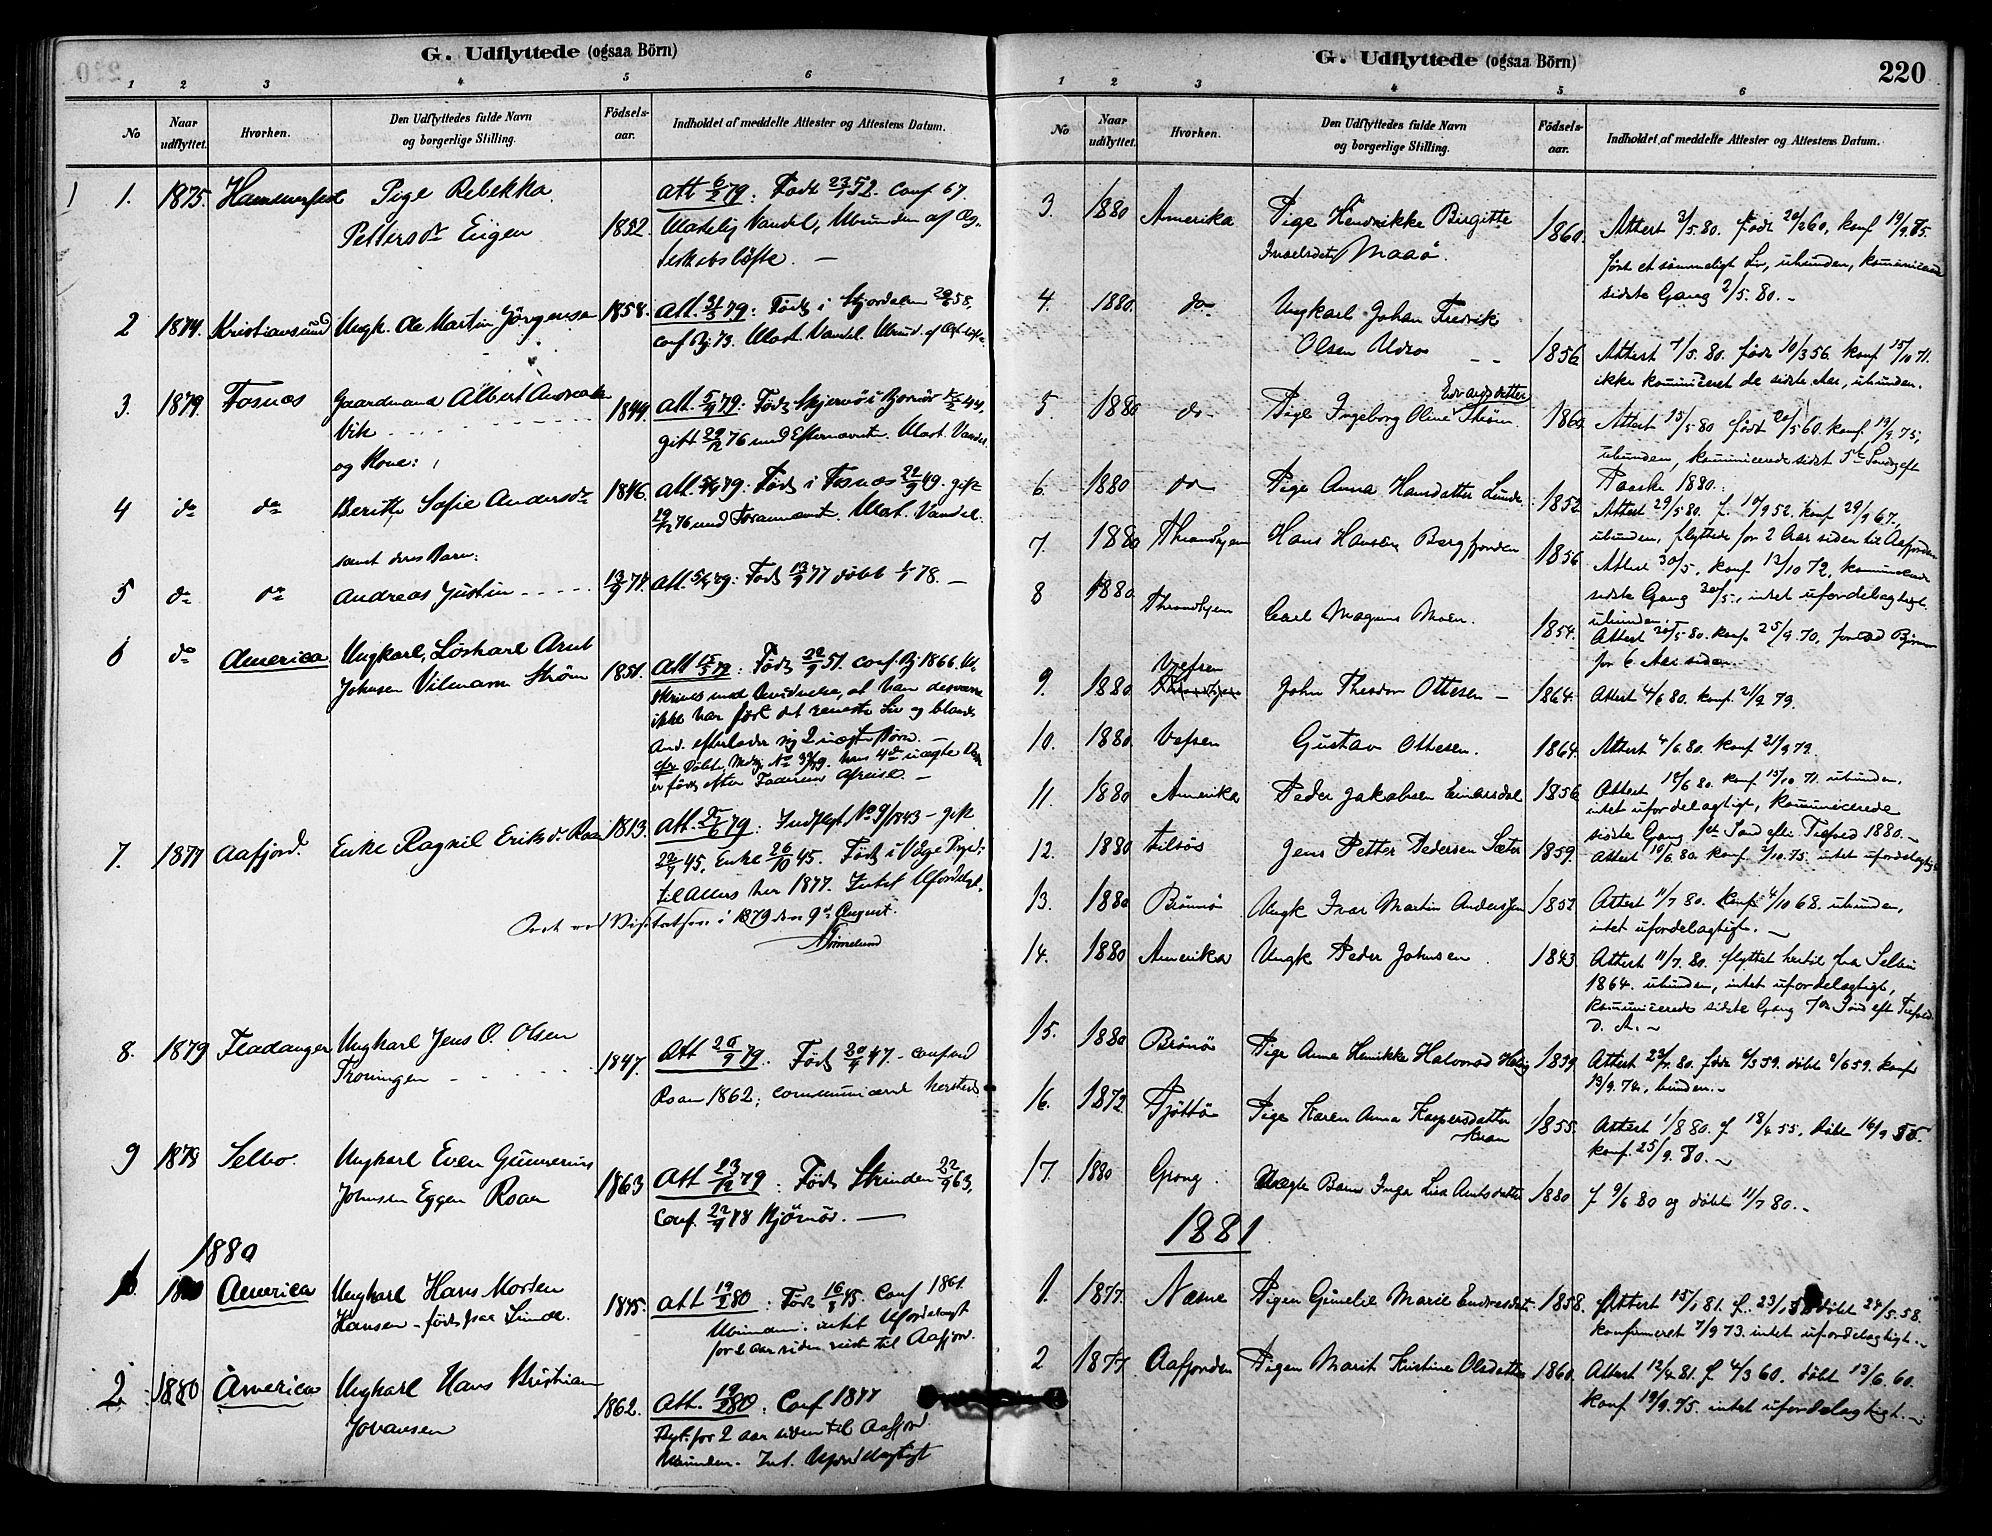 G. Udflyttede (ogsaa Börn)
1 2 3 4 5 6
No
Naar udflyttet.
Hvorhen.
Den Udflyttedes fulde Navn og borgerlige Stilling.
Födsels-aar.
Indholdet af meddelte Attester og Attestens Datum.
1. 1875. Hammerfest Pige Rebekka Att 6/2 79: Født 23/1 52. Conf 67.
Petters dr Eiigen 1852. Ulastelig Vandel, Ubunden af Æg-
teskabsløfte. —
2 1874. Kristiansund Ungk. Ole Martin Jörgensen 1858. Att. 31/3 79: Født i Stjordalen 58,
conf Bj. 73. Ulast. Vandel. Ubund. af
3. 1879. Fosnæs Gaardmand Albert Andreas 1844. Att. 5/4 79: Født Skjervöe i Bjørnør 44,
Vik gift 29/12 76 med Efternævnte. Ulast. Vandel.
og Kone:
4 do do Berith Sofie Anders dr 1846. Att. 5/4 79: Født i Fosnæs 22/9 49. gift
29/12 76 med Forannævnte. Ulast. Vandel.
samt deres Barn:
5 do do Andreas Justin 13/9 77 Att. 5/4 79: Født 13/9 77 døbt 1/1 78. —
6 do America Ungkarl, Løskarl Arnt
Johnsen Vilmann Strøm 1851. Att 15/5 79: Født 22/9 51. Conf. Bj. 1866. Ub
Skrives med Anmærkn, at han desværre
ikke har ført det reneste Liv og blandt
And. efterlader sig 2 uægte Børn. —
cfr Døbte No 33/79. hans 4de uægte Barn
er født efter Faderens Afreise. —
7. 1877 Aafjord. Enke Ragnil Eriks dr Roan 1813. Att. 79: Indflyt No 9/1843 — gift
45, Enke 26/10 45. Født i
til Alters her 1877. Intet Ufordelagt.
1879 den 9de August.
8. 1879 Fladanger Ungkarl Jens O. Olsen
Troningen 1847. Att 20/9 79. Født 47. — confered
Roan 1862; communicered hersteds
9 1878 Selbo. Ungkarl Even Gunnerius
Johnsen Eggen Roan 1863 Att 23/12 79: Født Strinden 22/9 63,
Conf. 22/9 78 Bjørnør. —
1880
1. America Ungkarl Hans Morten
Hansen — født paa Linde. 1845. Att 19/2 80: Født 16/8 45 Conf 1861.
Ubunden. intet Ufordelagt
for 2 aar siden reist til Aafjord.
2. 1880 America Ungkarl Hans Kristian
Jovansen 1862. Att. 19/2 80: Conf 1877
Flyt. for 2 aar siden til Aafjord
Ubunden. Int. Ufordelagtigt
G. Udflyttede (ogsaa Börn)
220
1 2 3 4 5 6
No
Naar udflyttet
Hvorhen.
Den Udflyttedes fulde Navn og borgerlige Stilling.
Födsels-aar.
Indholdet af meddelte Attester og Attestens Datum.
3. 1880 Amerika Pige Hendrikke Birgitte
Maaø. 1860. Attest 3/5. 80. født 20/2 60, konf 19/9. 75.
ført et sømmeligt Liv, ubunden, kommunicerede
sidste Gang 2/5. 80. —
4. 1880. do Ungkarl Johan Fredrik
Olsen Uldro 1856 Attest 7/5. 80. født 10/3 56 konf 15/10 71.
ikke kommuniceret de sidste Aar, ubunden.
5. 1880 do Pige Ingeborg Oline Edvardsdatter Strøm. 1860. Attest 15/5 80 født 20/5 60. konf. 19/9 75,
ubunden, kommunicerede sidst 5te Søndag eft
Paaske 1880.
6. 1880 do Pige Anna Hansdatter Lunde 1852 Attest 29/5 80. f. 10/9 52. konf 29/9 67.,
ubunden, flyttede for 2 Aar siden til Aafjorden
7. 1880 Throndhjem Hans Hansen Bergfjorden 1856 Attest 30/5. konf 13/10 72, kommunicerede
sidste Gang 30/5., intet ufordelagtigt
ubunden.
8 1880. Throndhjem Carl Magnus Moen. 1854. Attest 20/5 80. konf 25/9. 70, forlod Bjørnør
for 6 Aar siden.
9. 1880 Vefsen John Theodor Ottesen — 1864. Attest 4/6 80. konf. 21/9 79.
10. 1880. Vefsen Gustav Ottesen. 1864. Attest 4/6 80. konf 21/9 79.
11. 1880 Amerika Peder Jakobsen Einarsdal 1856 Attest 12/6 80. konf 15/10 71. ubunden.
intet ufordelagtigt, kommunicerede
sidste Gang 1ste Sønd efter Trefold 1880. —
12. 1880 Peder Jens Petter Pedersen Sæter 1859. Attest 10/6 80. konf 3/10. 75. intet ufordelagtigt.
13. 1880 Brønnø Ungk Ivar Martin Anderssen 1852 Attest 11/7 80. konf 4/10 68. ubunden,
intet ufordelagtigt. —
14. 1880 Amerika Ungk Peder Johnsen 1843. Attest 11/7. 80. flyttet hertil fra Selbu
1864. ubunden, intet ufordelagtigt,
kommunicerede sidste Gang 7de Sønd eft Trefold.
d. A. —
15. 1880 Brønnø Pige Anna Henrikke Halvorsd 1859. Attest 23/7. 80. født 6/3 59. døbt 9/6 59. konf
13/9. 74, bunden. —
16. 1872 Tjøttø Pige Karen Anna Kaspersdatter 1855. Attest 1/8 80. f 18/4 55. døbt 16/9 55.
konf. 25/9. 70. —
17. 1880 Grong. Uægte Barn Inga Lisa Arntsdatter 1880 f 9/6 80 og døbt 11/7 80. —
1881
1. 1877. Næsne Pigen Gunelie Marie Endresdat 1858. Attest 15/1 81. f. 23/1 58 døbt 24/5. 58.
konfirmeret 7/9 73. intet ufordelagtigt. —
2 1877 Aafjorden Pigen Marit Kristine Olsdatter 1860. Attest 12/4 81. f 4/3 60. døbt 13/6. 60.
konf 19/9. 75. intet ufordelagtigt. —